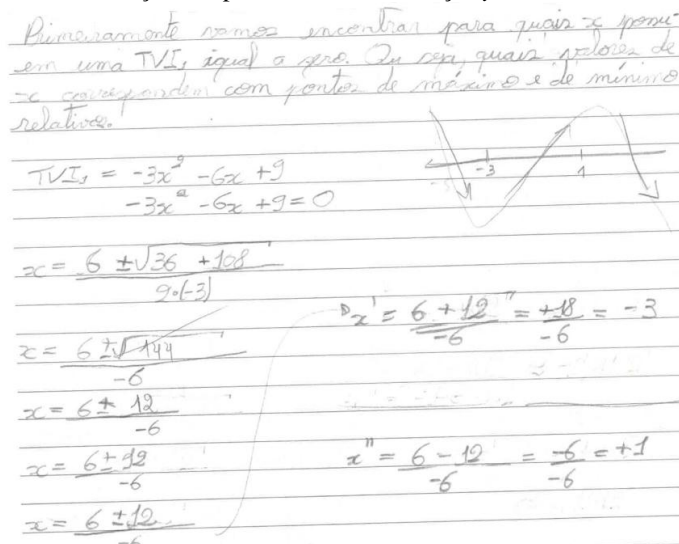 Primeiramente vamos encontrar para quais x possu-
em uma TVI, igual a zero. Ou seja, quais valores de
x correspondem com pontos de máximo e de mínimo
relativos.
TVI, = -3x² - 6x + 9
-3x² - 6x + 9 = 0
-3 1
x = 6 ±√36 + 108
2·(-3)
x = 6 ±√144
-6
x' = 6 + 12 = +18 = -3
-6 -6
x = 6 ± 12
-6
x = 6 ± 12
-6
x" = 6 - 12 = -6 = +1
-6 -6
x = 6 ± 12
-6